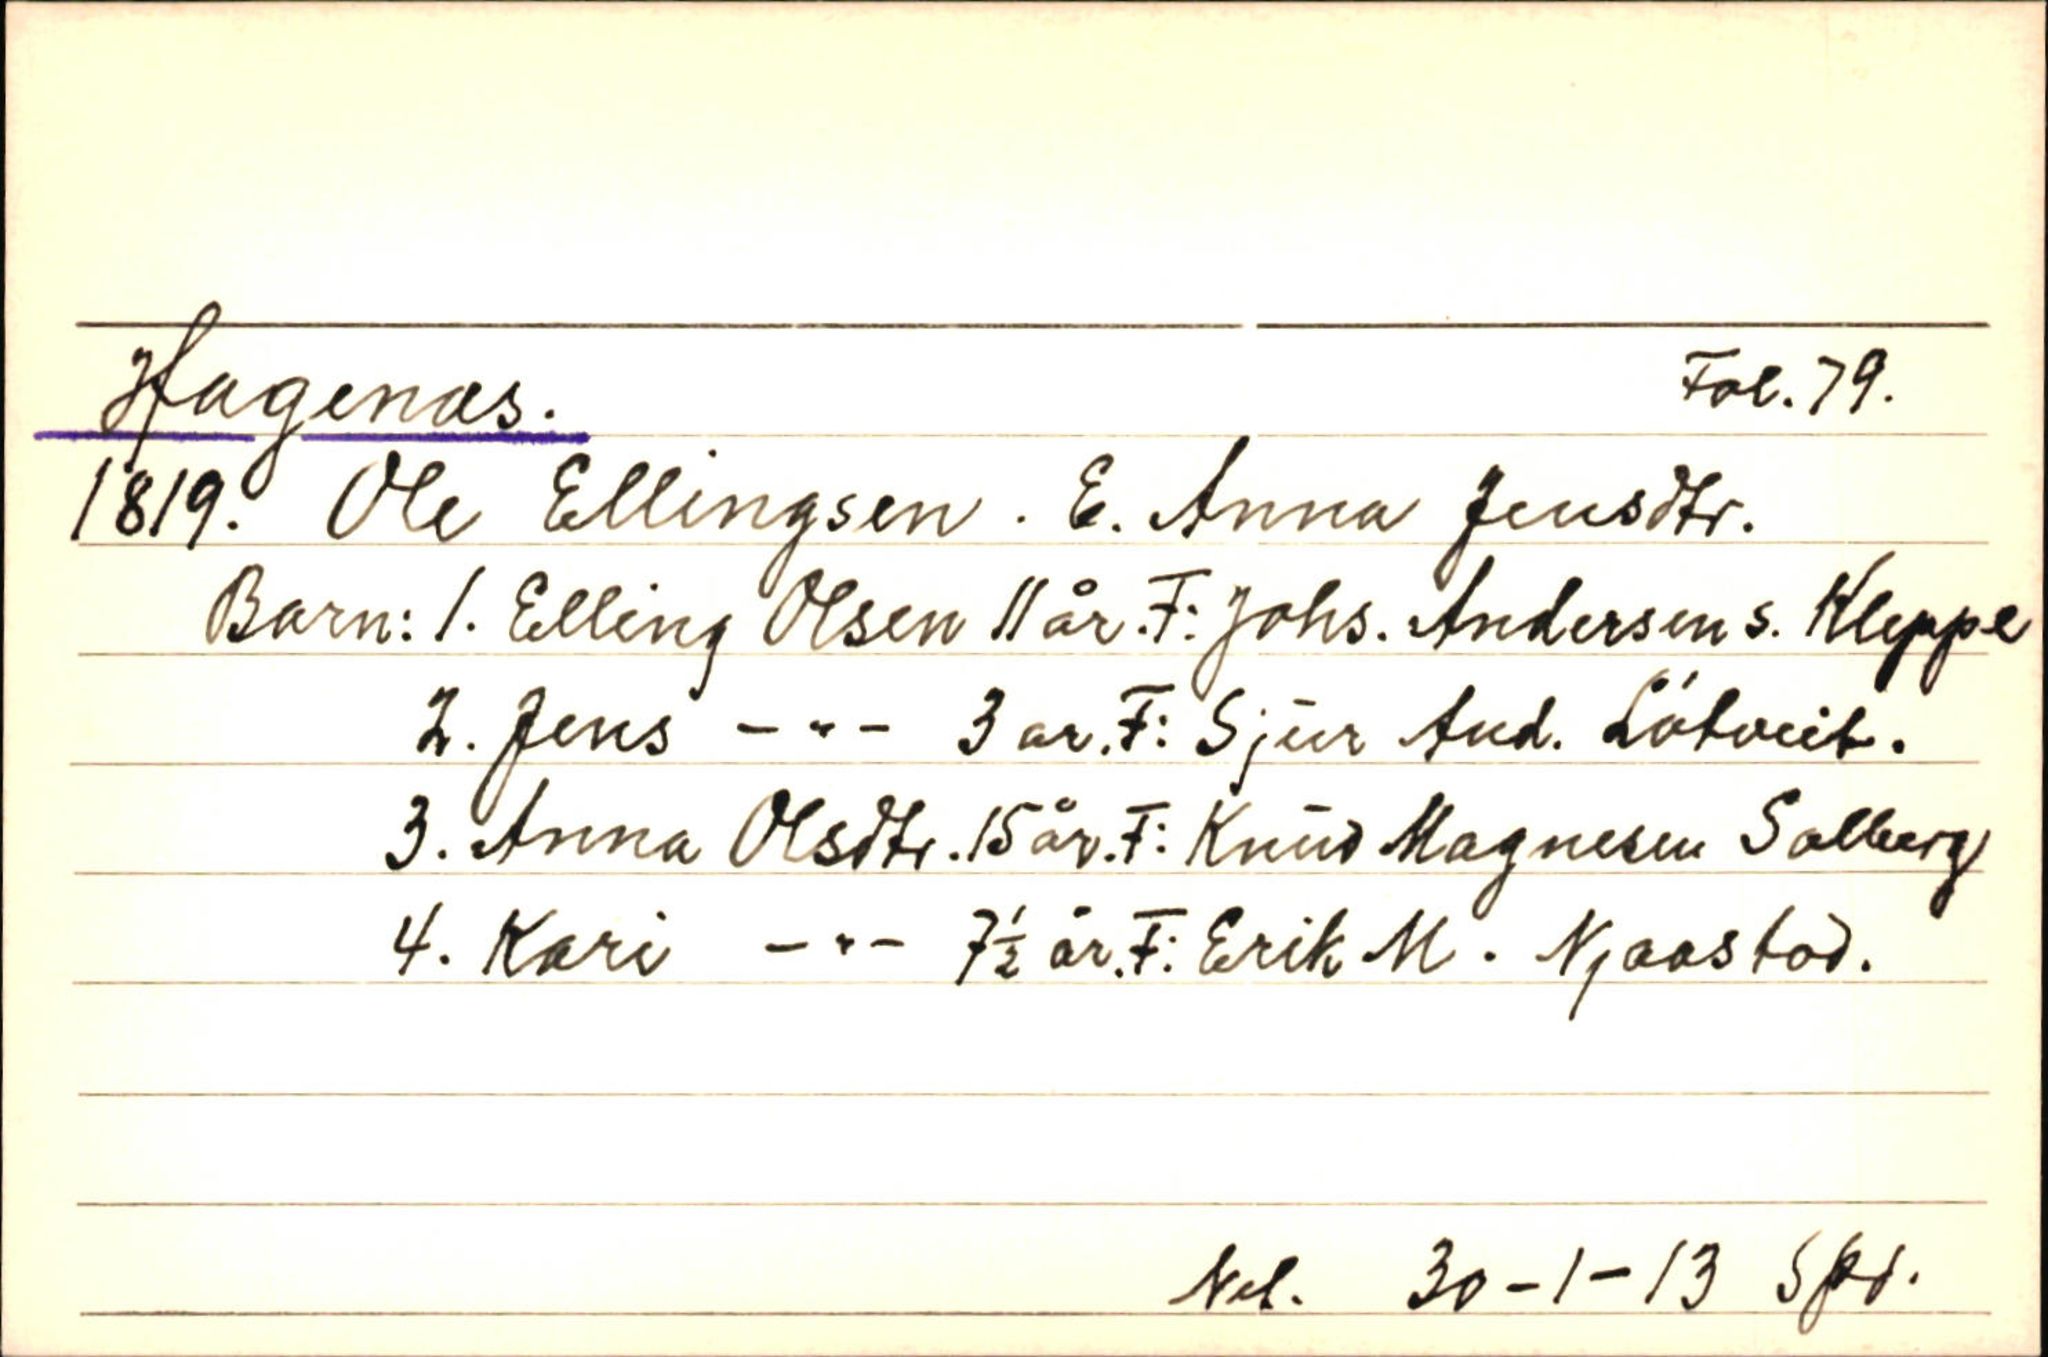 Hagenæs. Fol. 79.
1819. Ole Ellingsen. E. Anna Jensdtr.
Barn: 1. Elling Olsen 11 år. F: Johs. Andersen s. Kleppe
2. Jens -"- 3 år. F: Sjur And. Lótveit.
3. Anna Olsdtr. 15 år. F: Knud Magnesen Solberg
4. Kari -"- 7½ år. F: Erik M. Njaastad.
Net. 30-1-13 Spd.